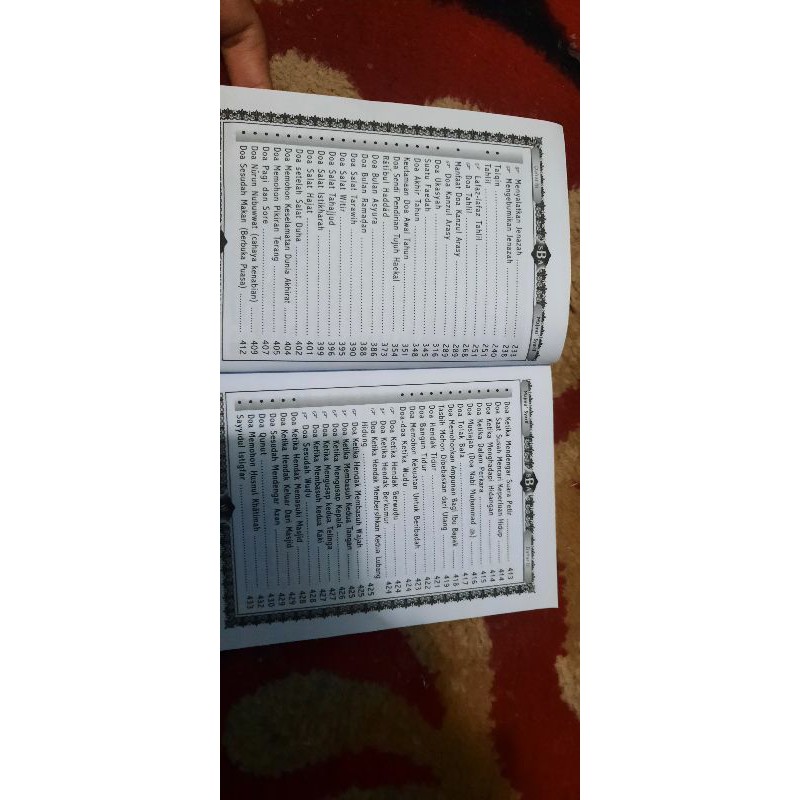 Majmu' Syarif
☞ Menyalatkan Jenazah 233
☞ Mengebumikan Jenazah 238
• Talqin 240
• Tahlil 251
☞ Lafaz-lafaz Tahlil 251
☞ Doa Tahlil 268
• Manfaat Doa Kanzul Arasy 289
☞ Doa Kanzul Arasy 289
• Doa Ukasyah 316
• Suatu Faedah 345
• Doa Akhir Tahun 348
• Keutamaan Doa Awal Tahun 351
• Doa Sendi Pendirian Tujuh Haekal 354
• Râtibul Haddâd 373
• Doa Bulan Asyura 386
• Doa Bulan Ramadan 388
• Doa Salat Tarawih 390
• Doa Salat Witir 395
• Doa Salat Tahajjud 396
• Doa Salat Istikharah 399
• Doa Salat Hajat 401
• Doa setelah Salat Duha 402
• Doa Memohon Keselamatan Dunia Akhirat 404
• Doa Memohon Pikiran Terang 405
• Doa Pagi dan Sore 407
• Doa Nûrun Nubuwwat (cahaya kenabian) 409
• Doa Sesudah Makan (Berbuka Puasa) 412
Majmu' Syarif
• Doa Ketika Mendengar Suara Petir 413
• Doa Saat Susah Mencari Keperluan Hidup 414
• Doa Ketika Menghadapi Hidangan 414
• Doa Ketika Dalam Perkara 415
• Doa Mustajab (Doa Nabi Muhammad ﷺ) 416
• Doa Tolak Bala 417
• Doa Memohonkan Ampunan Bagi Ibu Bapak 418
• Tasbih Mohon Dibebaskan dari Utang 419
• Doa Hendak Tidur 421
• Doa Bangun Tidur 422
• Doa Memohon Kekuatan Untuk Beribadah 423
• Doa-doa Ketika Wudu 424
☞ Doa Ketika Hendak Berwudu 424
☞ Doa Ketika Hendak Berkumur 424
☞ Doa Ketika Hendak Membersihkan Kedua Lubang
Hidung 425
☞ Doa Ketika Hendak Membasuh Wajah 425
☞ Doa Ketika Membasuh Kedua Tangan 425
☞ Doa Ketika Mengusap Kepala 426
☞ Doa Ketika Mengusap kedua Telinga 427
☞ Doa Ketika Membasuh kedua Kaki 427
☞ Doa Sesudah Wudu 428
• Doa Ketika Hendak Memasuki Masjid 428
• Doa Ketika Hendak Keluar Dari Masjid 429
• Doa Sesudah Mendengar Azan 429
• Doa Qunut 430
• Doa Memohon Husnul Khâtimah 432
• Sayyidul Istigfar 433